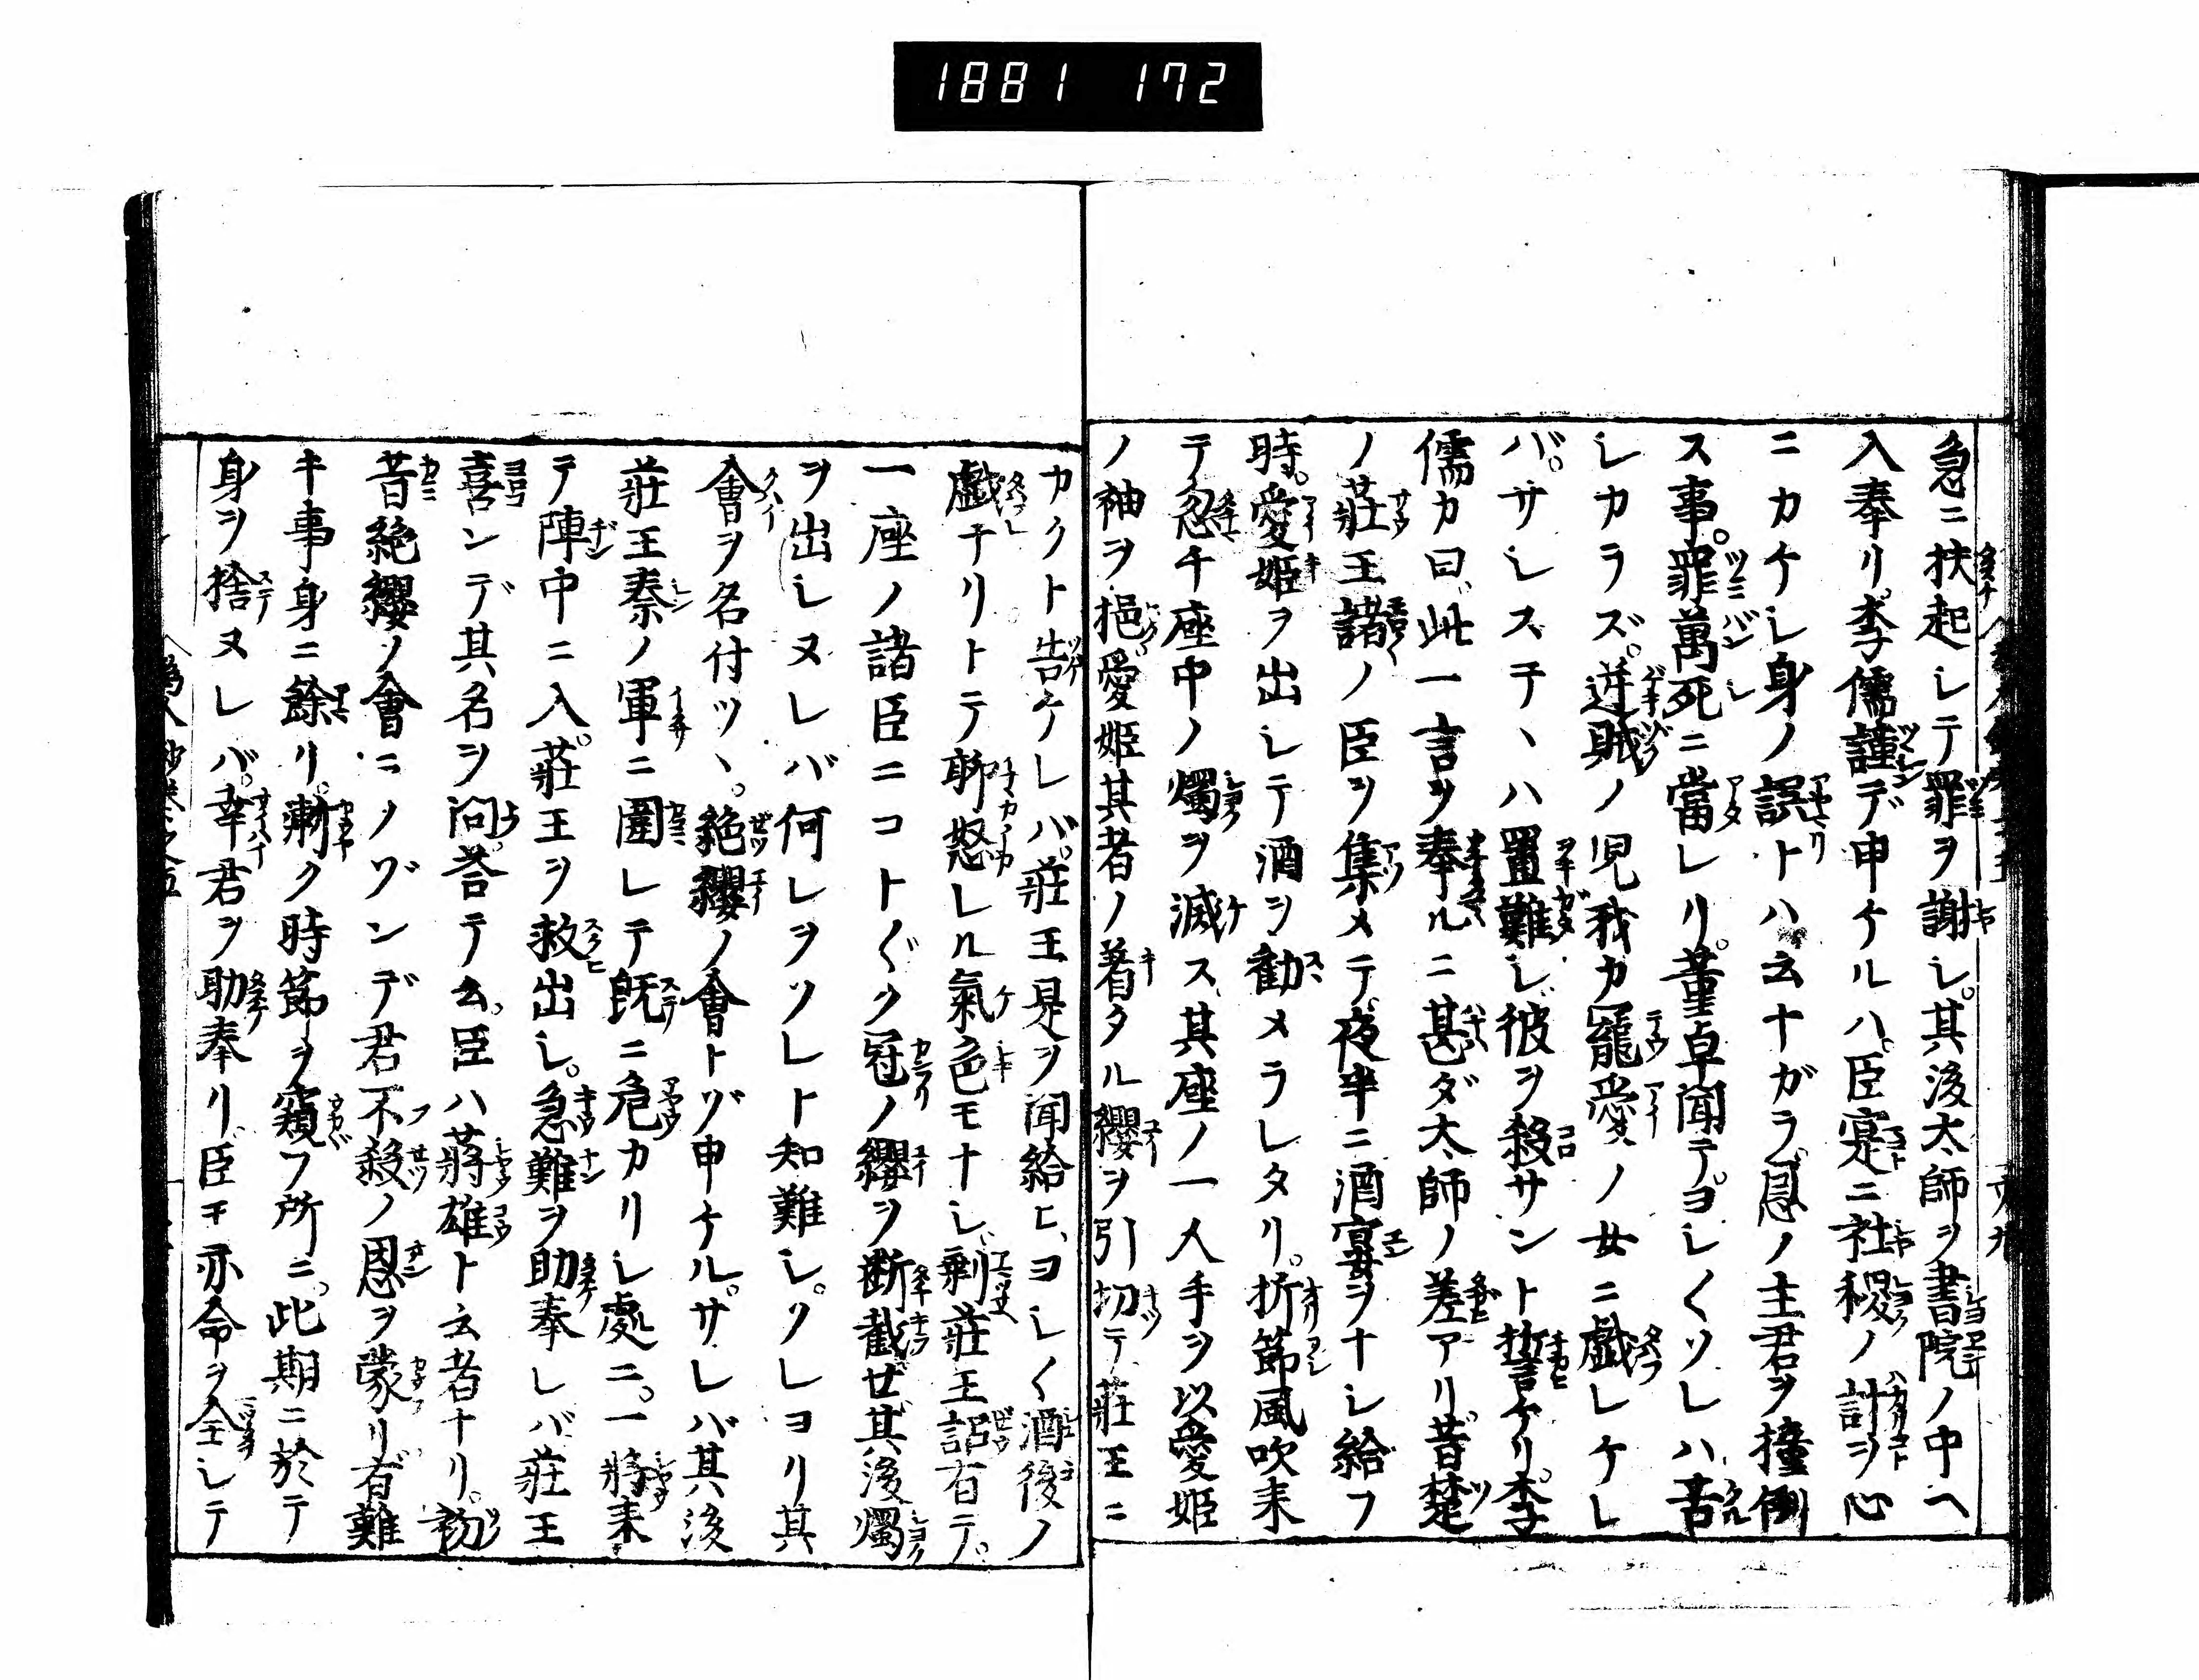 1881 172
急ニ扶起シテ罪ヲ謝シ。其後太師ヲ書院ノ中ヘ
入奉リ。李儒謹デ申ケルハ。臣寔ニ社稷ノ計ヲ心
ニカケシ身ノ誤トハ云ナガラ。恩ノ主君ヲ撞倒
ス事。罪萬死ニ當レリ。董卓聞テ。ヨシ〱ソレハ苦
シカラズ。逆賊ノ児我カ寵愛ノ女ニ戯レケレ
バ。サシステヽハ置難シ彼ヲ殺サント哲言ケリ。李
儒カ曰、此一言ヲ奉ルニ甚ダ太師ノ差アリ。昔楚
ノ莊王諸ノ臣ヲ集メテ。夜半ニ酒宴ヲナシ給フ
時。愛姫ヲ出シテ酒ヲ勸メラレタリ。折節風吹来
テ忽チ座中ノ燭ヲ滅ス、其座ノ一人手ヲ以愛姫
ノ袖ヲ挹、愛姫其者ノ着タル纓ヲ引切テ莊王ニ
カクト告ケレバ。莊王是ヲ聞給ヒ、ヨシ〱酒後ノ
戯ナリトテ聊怒レル氣色モナシ、剰莊王詔有テ。
一座ノ諸臣ニコト〲ク冠ノ纓ヲ断截セ其後燭
ヲ出シヌレバ何レヲソレト知難シ。ソレヨリ其
會ヲ名付ツヽ。絶纓ノ會トゾ申ケル。サレバ其後
莊王秦ノ軍ニ圍レテ既ニ危カリシ處ニ。一將来
テ陣中ニ入。莊王ヲ救出シ。急難ヲ助奉レバ莊王
喜ンデ其名ヲ問。荅テ云。臣ハ蒋雄ト云者ナリ。初
昔絶纓ノ會ニノゾンデ君不殺ノ恩ヲ蒙リ有難
キ事身ニ餘リ。漸ク時節ヲ窺フ所ニ。此期ニ於テ
身ヲ捨ヌレバ。幸君ヲ助奉リ臣モ亦命ヲ全シテ